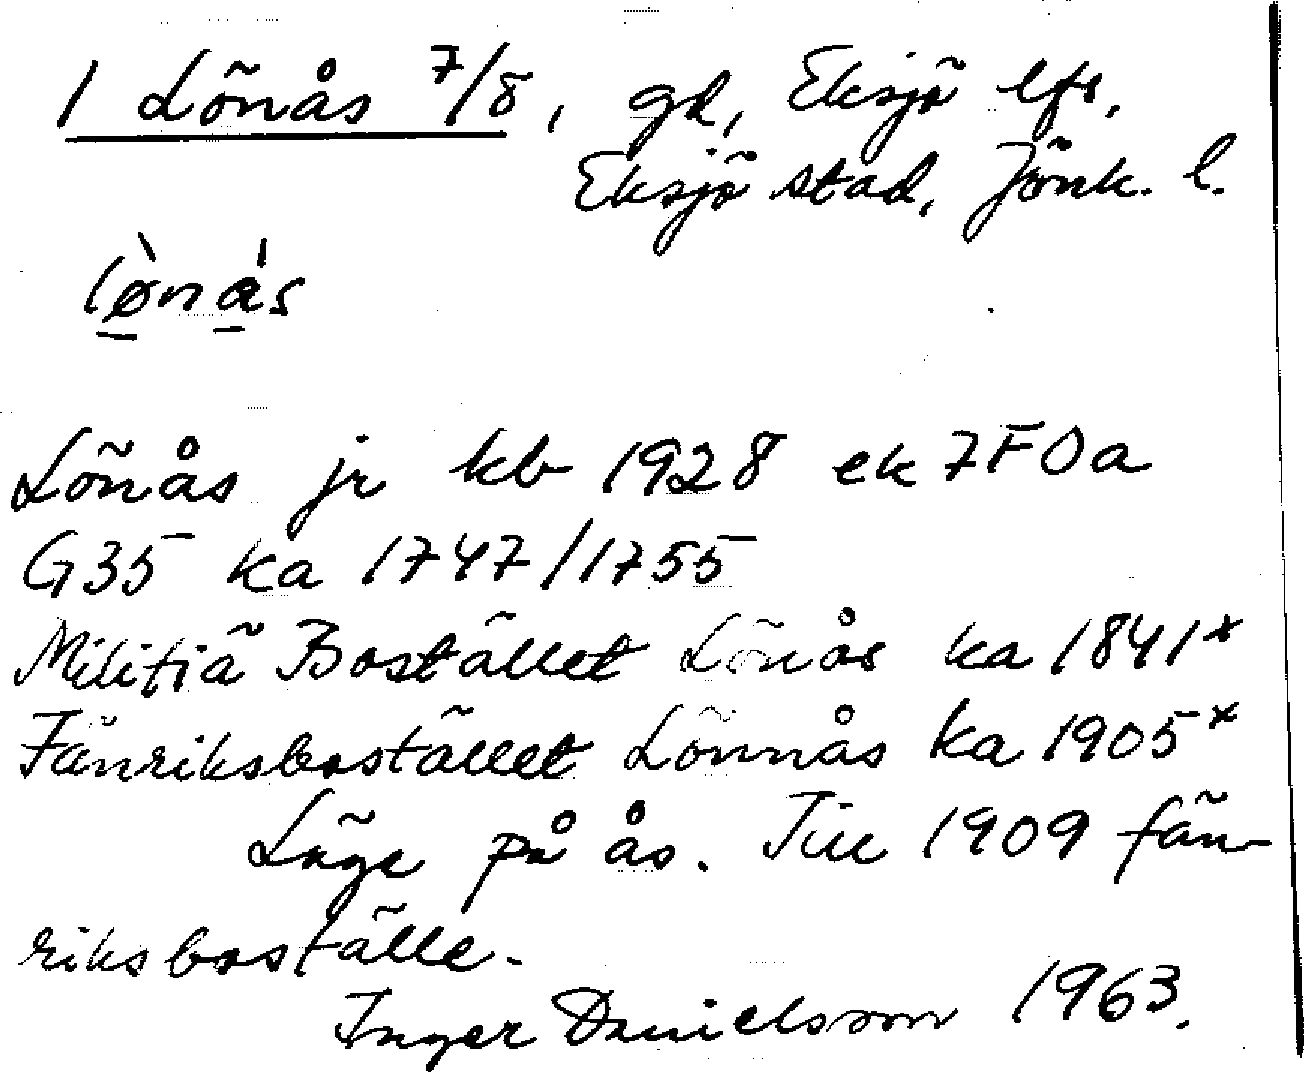 1 Lönås 7/8, gd, Eksjö lfs,
Eksjö stad, Jönk. l.
lø̀nás
Lönås jr kb 1928 ek 7F0a
G35 ka 1747/1755
Militiä Bostället Lönås ka 1841*
Fänriksbostället Lönnås ka 1905*
Läge på ås. Till 1909 fän-
riksboställe.
Inger Danielsson 1963.